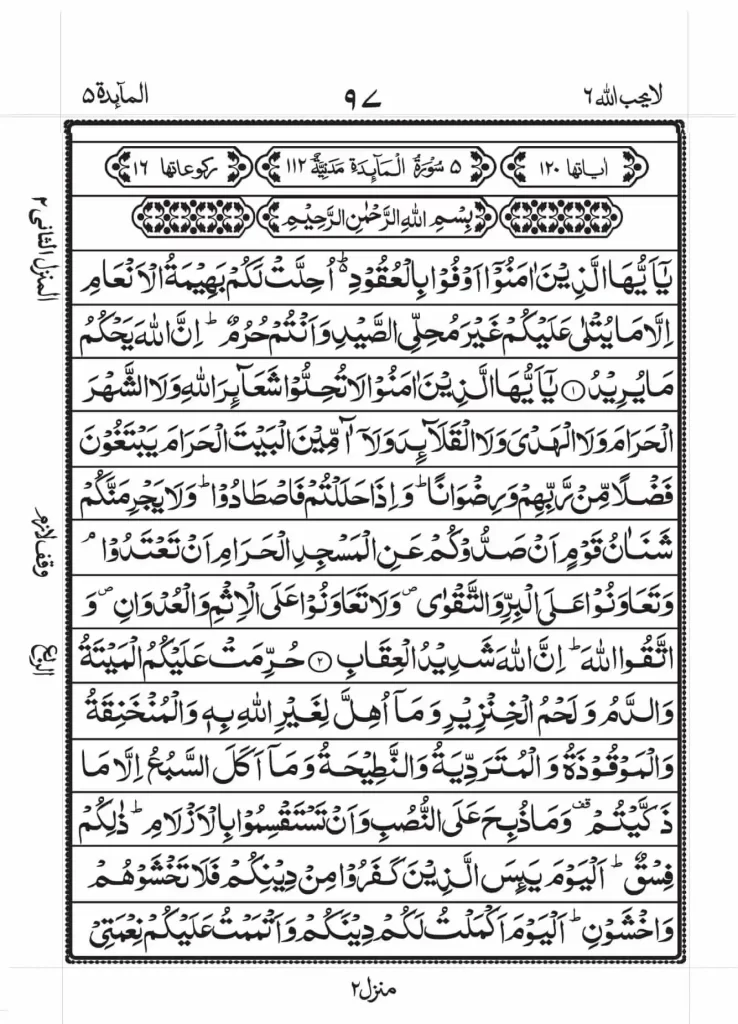 لایحب الله ٦
٩٧
المآىِٕدة ٥
اٰیاتها ١٢٠
٥ سُوْرَةُ الْمَآىِٕدَةِ مَدَنِیَّةٌ ١١٢
رکوعاتها ١٦
بِسْمِ اللهِ الرَّحْمٰنِ الرَّحِیْمِ
یٰۤاَیُّهَا الَّذِیْنَ اٰمَنُوْۤا اَوْفُوْا بِالْعُقُوْدِ ؕ۬ اُحِلَّتْ لَكُمْ بَهِیْمَةُ الْاَنْعَامِ
اِلَّا مَا یُتْلٰى عَلَیْكُمْ غَیْرَ مُحِلِّی الصَّیْدِ وَ اَنْتُمْ حُرُمٌ ؕ اِنَّ اللهَ یَحْكُمُ
مَا یُرِیْدُ ۝١ یٰۤاَیُّهَا الَّذِیْنَ اٰمَنُوْا لَا تُحِلُّوْا شَعَآىِٕرَ اللهِ وَ لَا الشَّهْرَ
الْحَرَامَ وَ لَا الْهَدْیَ وَ لَا الْقَلَآىِٕدَ وَ لَاۤ آٰمِّیْنَ الْبَیْتَ الْحَرَامَ یَبْتَغُوْنَ
فَضْلًا مِّنْ رَّبِّهِمْ وَ رِضْوَانًا ؕ وَ اِذَا حَلَلْتُمْ فَاصْطَادُوْا ؕ وَ لَا یَجْرِمَنَّكُمْ
شَنَاٰنُ قَوْمٍ اَنْ صَدُّوْكُمْ عَنِ الْمَسْجِدِ الْحَرَامِ اَنْ تَعْتَدُوْا ۘ
وَ تَعَاوَنُوْا عَلَى الْبِرِّ وَ التَّقْوٰى ۪ وَ لَا تَعَاوَنُوْا عَلَى الْاِثْمِ وَ الْعُدْوَانِ ۪ وَ
اتَّقُوا اللهَ ؕ اِنَّ اللهَ شَدِیْدُ الْعِقَابِ ۝٢ حُرِّمَتْ عَلَیْكُمُ الْمَیْتَةُ
وَ الدَّمُ وَ لَحْمُ الْخِنْزِیْرِ وَ مَاۤ اُهِلَّ لِغَیْرِ اللهِ بِهٖ وَ الْمُنْخَنِقَةُ
وَ الْمَوْقُوْذَةُ وَ الْمُتَرَدِّیَةُ وَ النَّطِیْحَةُ وَ مَاۤ اَكَلَ السَّبُعُ اِلَّا مَا
ذَكَّیْتُمْ ۫ وَ مَا ذُبِحَ عَلَى النُّصُبِ وَ اَنْ تَسْتَقْسِمُوْا بِالْاَزْلَامِ ؕ ذٰلِكُمْ
فِسْقٌ ؕ اَلْیَوْمَ یَىِٕسَ الَّذِیْنَ كَفَرُوْا مِنْ دِیْنِكُمْ فَلَا تَخْشَوْهُمْ
وَ اخْشَوْنِ ؕ اَلْیَوْمَ اَكْمَلْتُ لَكُمْ دِیْنَكُمْ وَ اَتْمَمْتُ عَلَیْكُمْ نِعْمَتِیْ
المنزل الثانی ٢
وقف لازم
الربع
منزل ٢